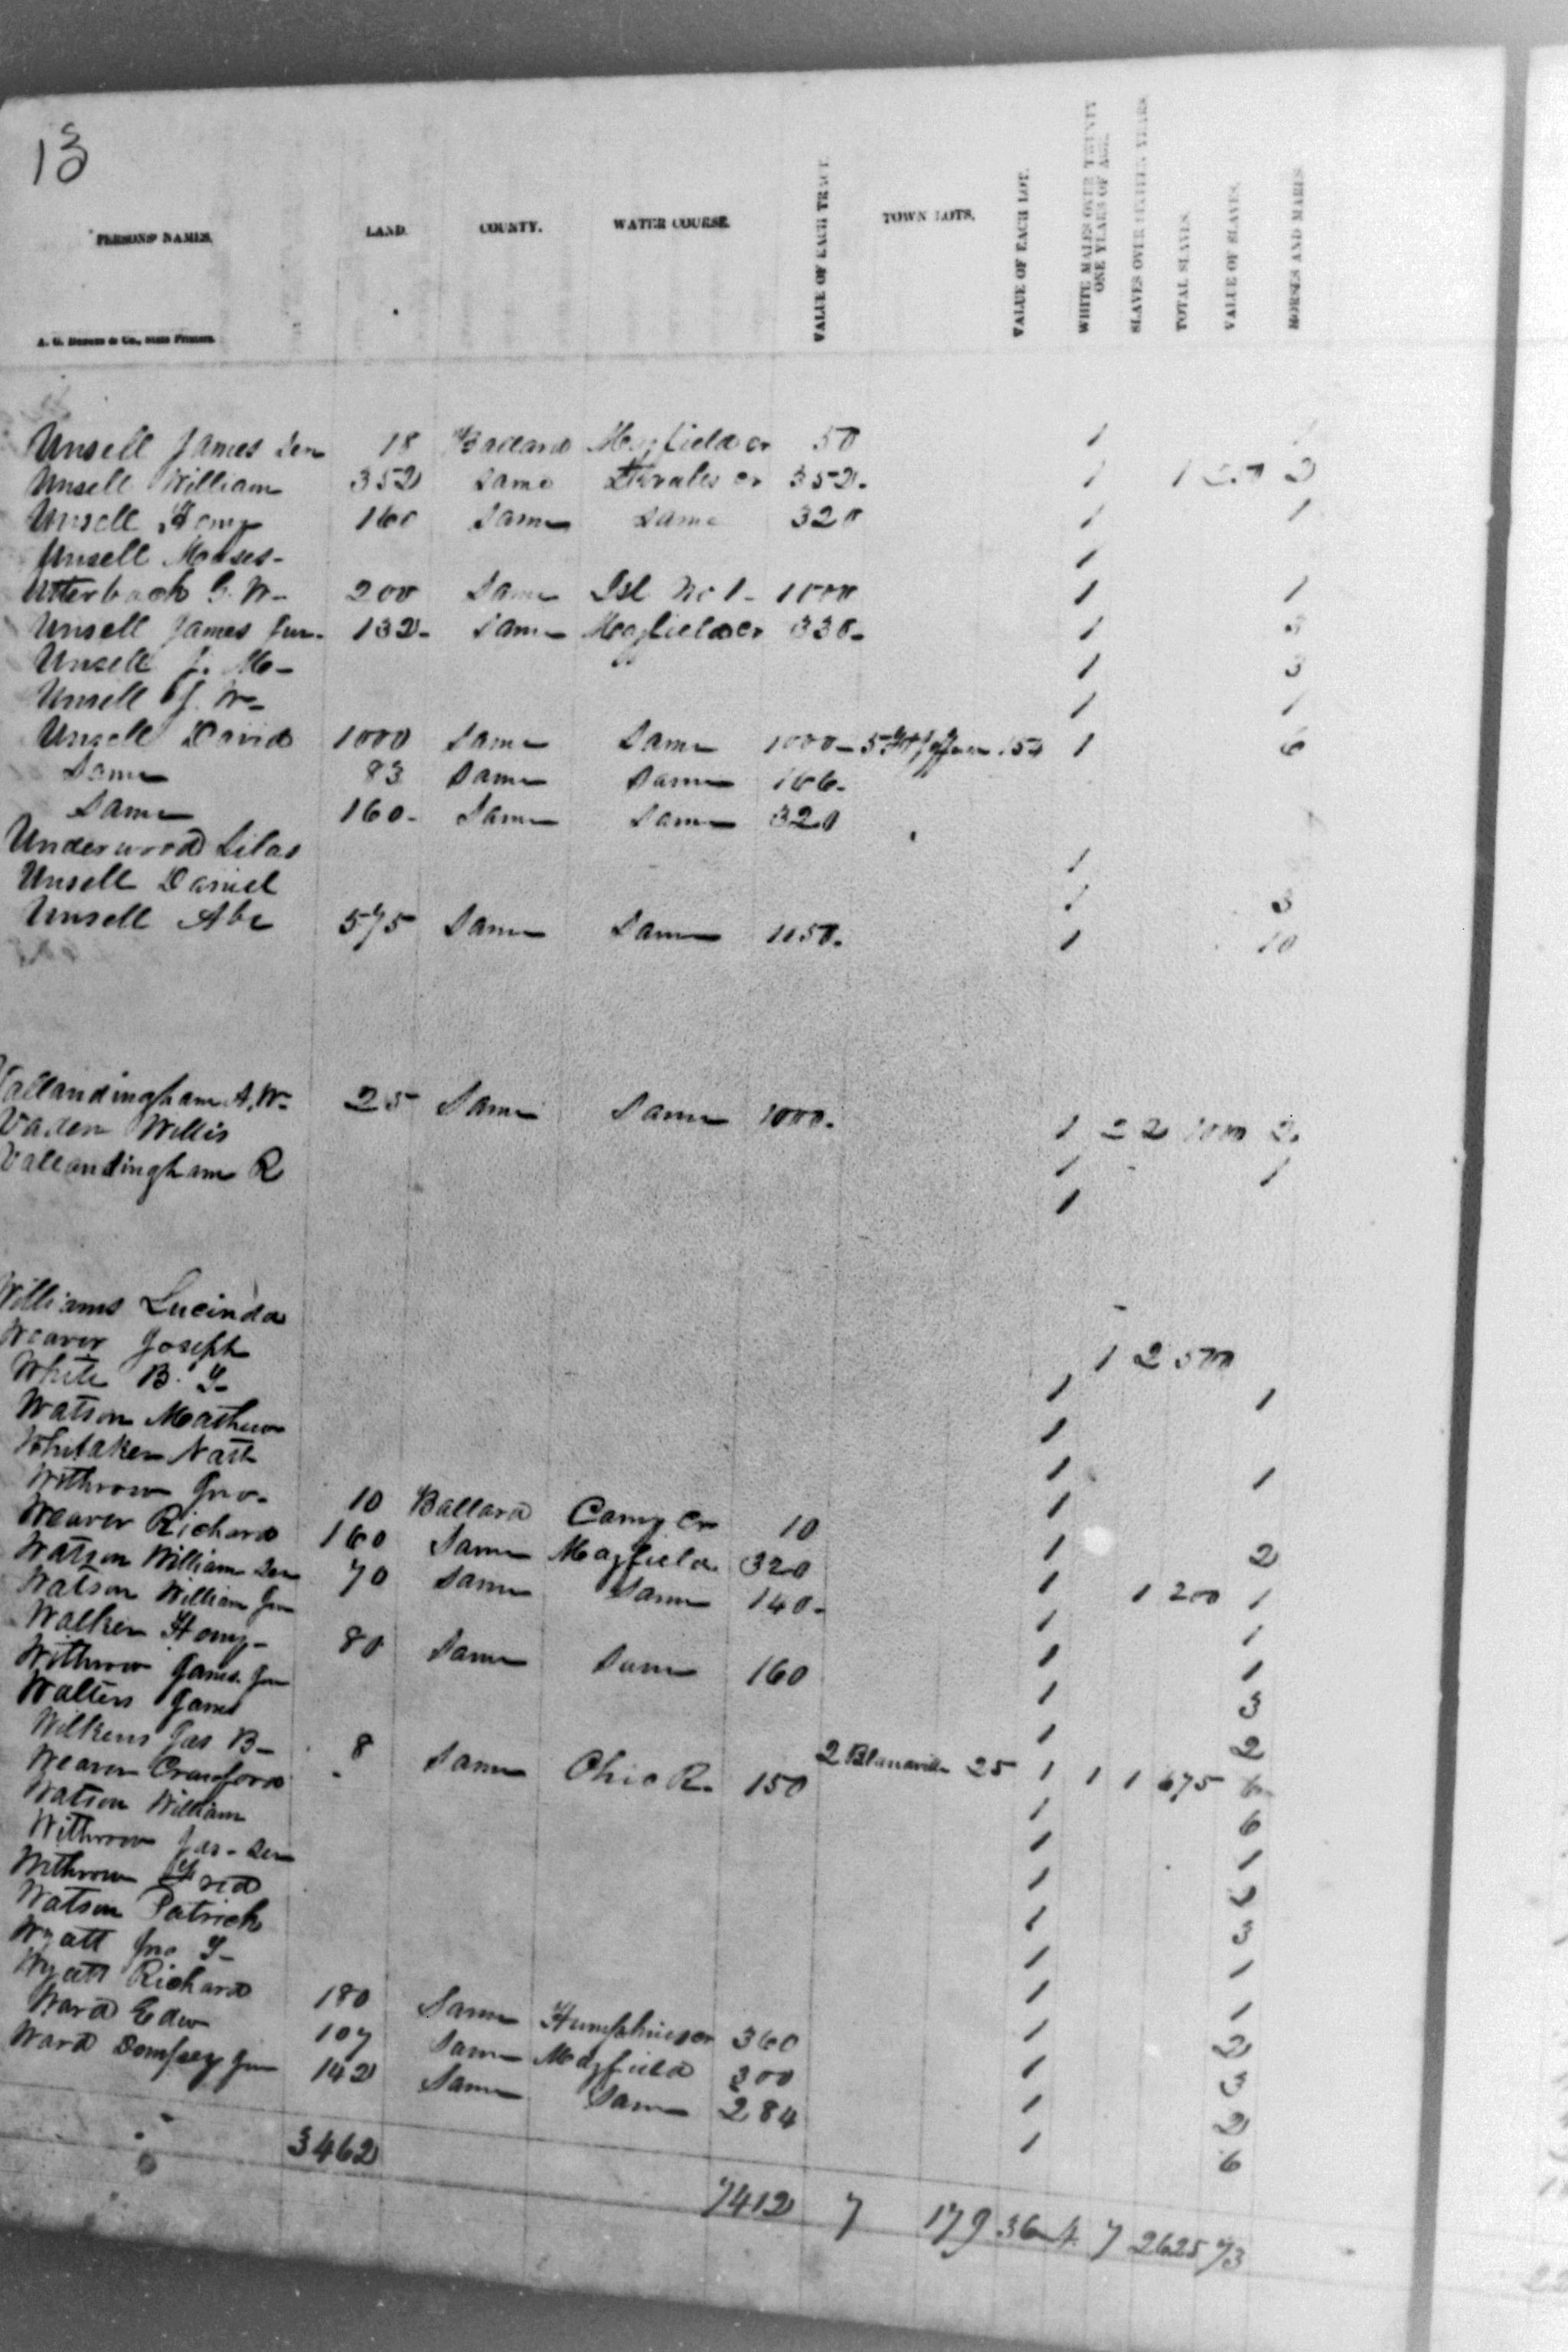 13
PERSONS' NAMES. LAND. COUNTY. WATER COURSE. VALUE OF EACH TRACT. TOWN LOTS. VALUE OF EACH LOT. WHITE MALES OVER TWENTY ONE YEARS OF AGE. SLAVES OVER SIXTEEN YEARS. TOTAL SLAVES. VALUE OF SLAVES. HORSES AND MARES.
A. G. Hodges & Co., State Printers.
Unsell James Sen 18 Ballard Mayfield cr 50 1
Unsell William 352 Same cr 352 1 1 250 2
Unsell Henry 160 Same Same 320 1 1
Unsell Moses 1
Utterback G. W. 200 Same Isl No 1 1000 1 1
Unsell James Jun. 132 Same Mayfield cr 330 1 3
Unsell J. Mc 1 3
Unsell J. W. 1 1
Unsell David 1000 Same Same 1000 5 154 1 6
Same 83 Same Same 166
Same 160 Same Same 320
Underwood Silas 1
Unsell Daniel 1 3
Unsell Abe 575 Same Same 1150 1 10
Vallandingham A. W. 25 Same Same 1000 1 2 2 1000 2
Vaden Willis 1 1
Vallandingham R 1
Williams Lucinda 1 2 500
Weaver Joseph 1 1
White B. T. 1
Watson Mathew 1 1
Whitaker Nath 1
Withrow Jno. 10 Ballard Camp Cr 10 1 2
Weaver Richard 160 Same Mayfield 320 1 1 200 1
Watson William Sen 70 Same Same 140 1 1
Watson William Jun 1 1
Walker Henry 80 Same Same 160 1 3
Withrow James Jun 1 2
Walters James 2 Blanville 25 1 1 1 675 6
Wilkens Jas B 8 Same Ohio R. 150 1 6
Weaver Crawford 1 1
Watson William 1 2
Withrow Jas. Sen 1 3
Withrow 1 1
Watson Patrick 1 1
Wyatt Jno T. 1 2
Wyatt Richard 180 Same Humphries cr 360 1 3
Ward Edw 107 Same Mayfield 300 1 2
Ward Dempsey Jun 142 Same Same 284 1 6
3462 7412 7 179 36 4 7 2625 73